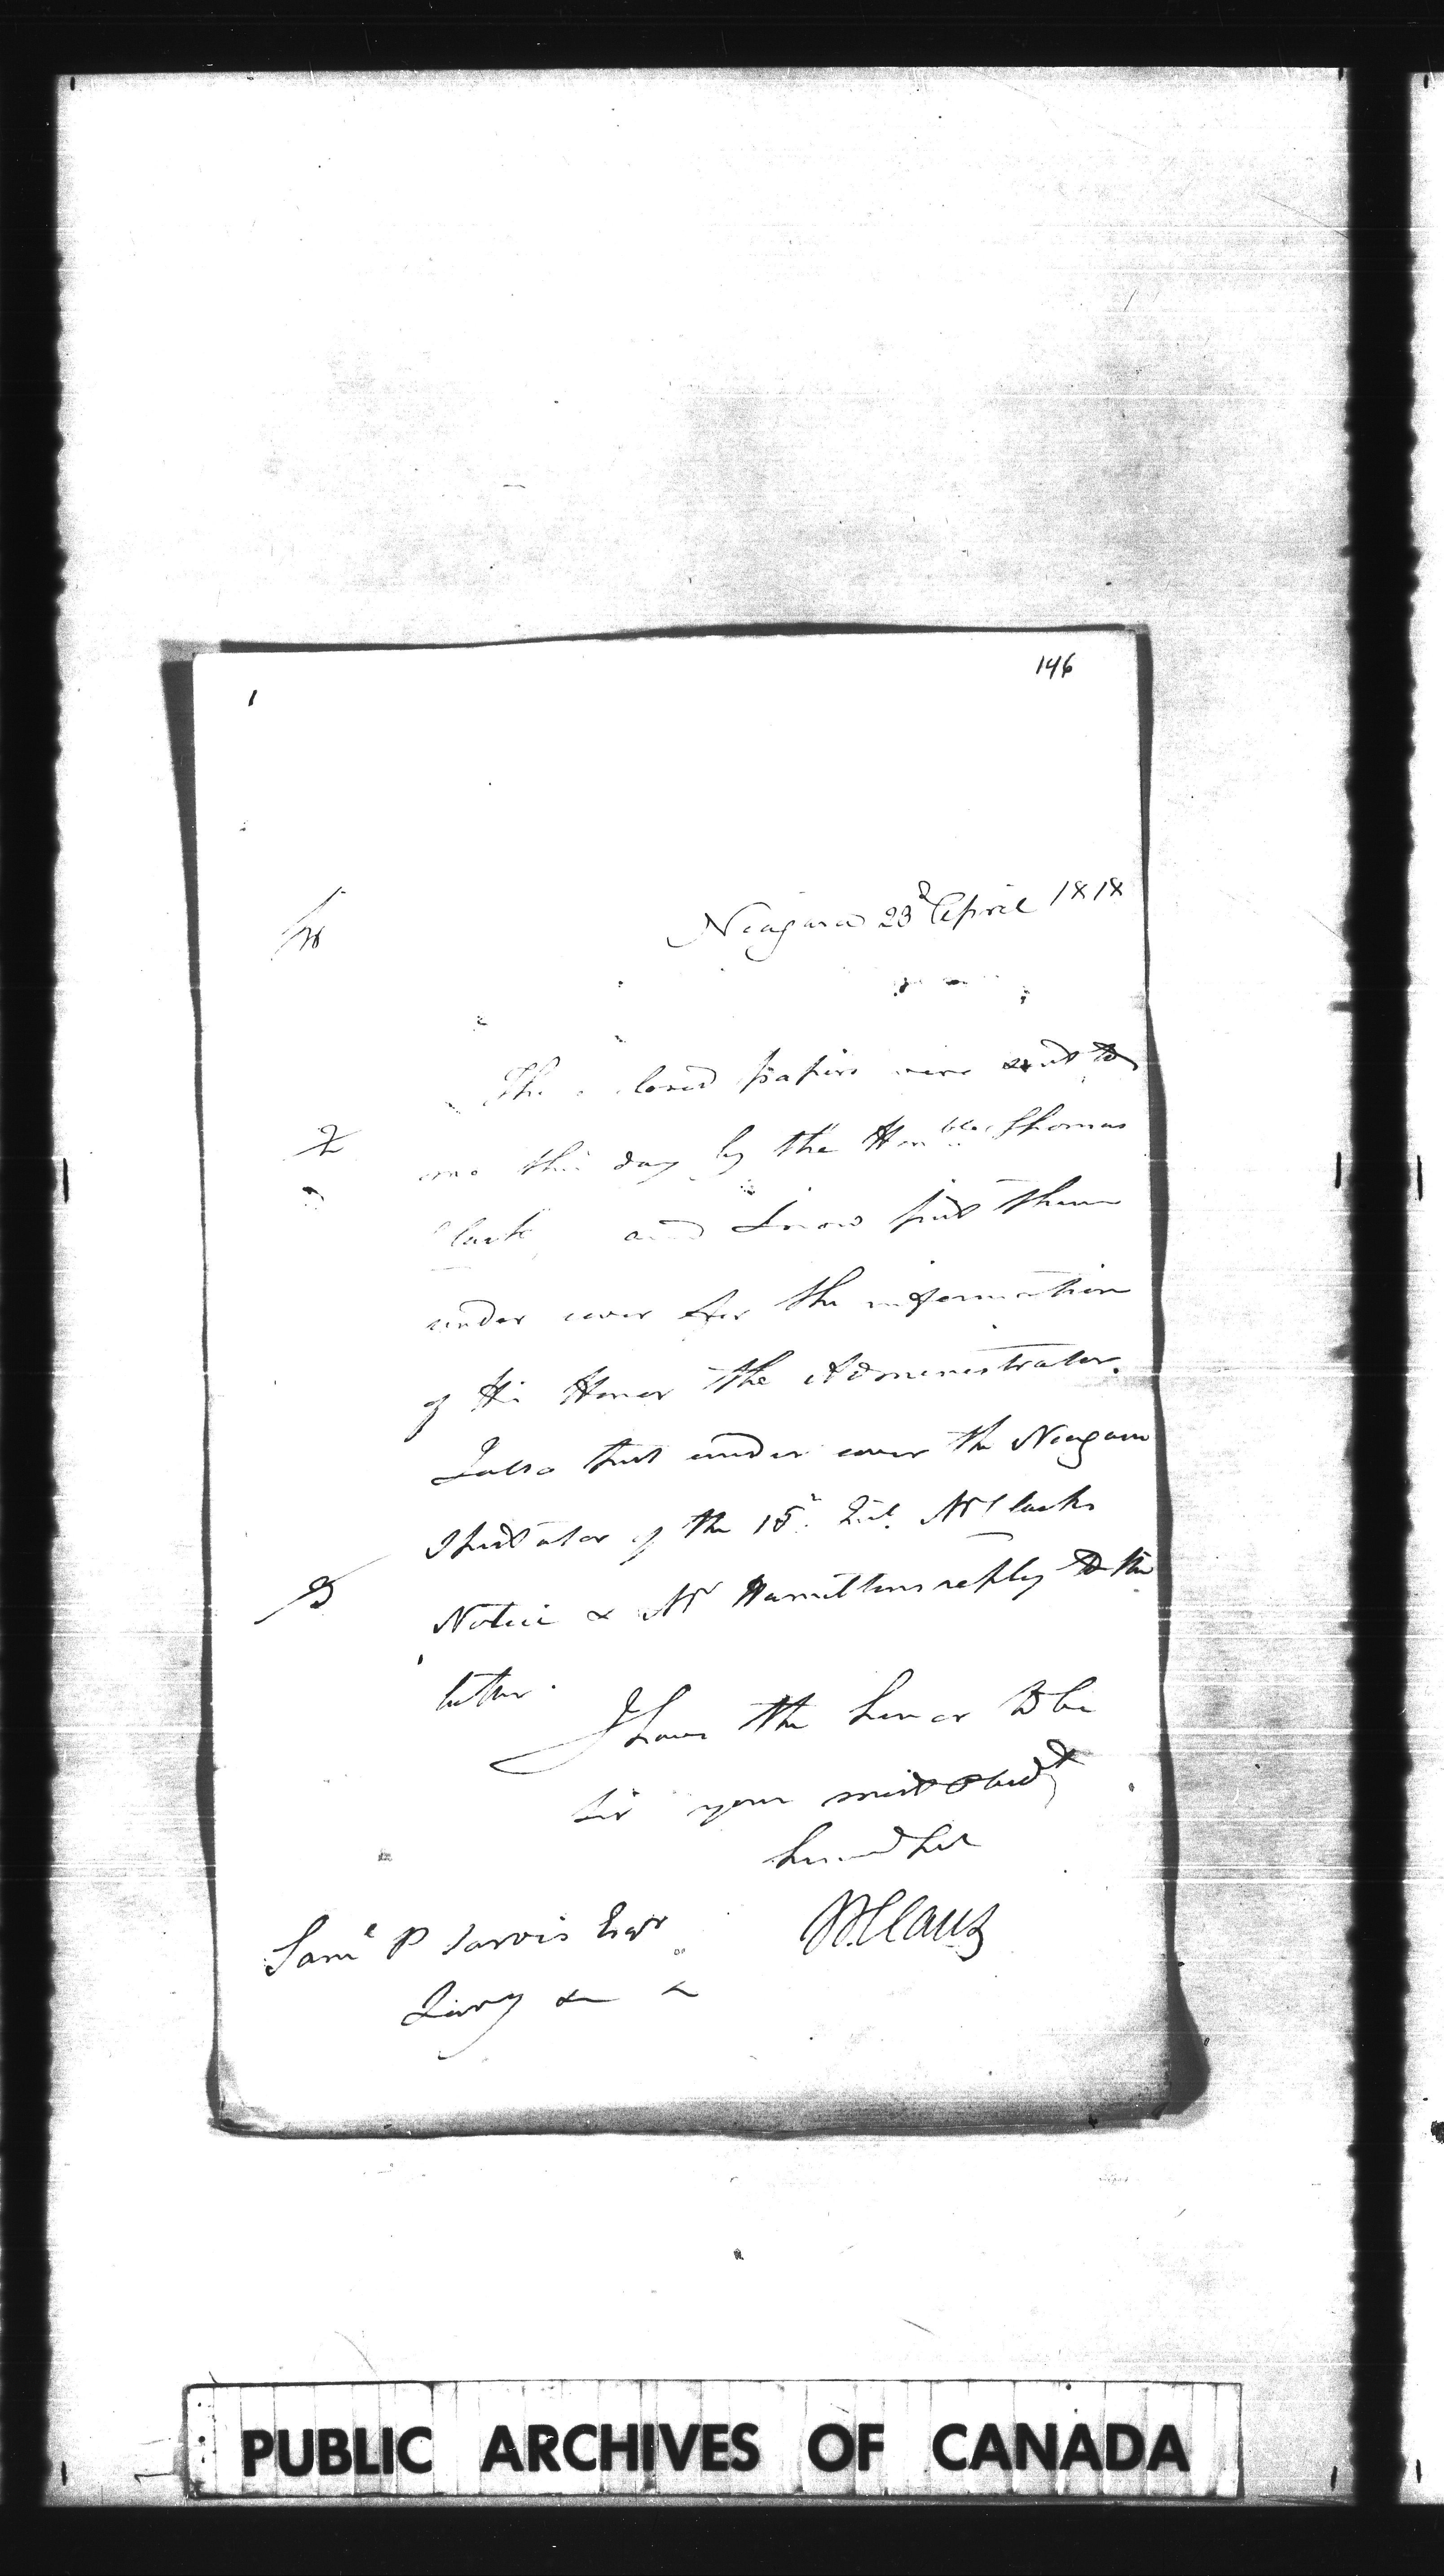 146
1
Niagara 23d April 1818
Sir
The closed papers were sent to
me this day by the Honble Thomas
Clark and I now put them
under cover for the information
of His Honor the Administrator.
I also put under cover the Niagara
Spectator of the 15th Inst. Mr Clarks
Notice & Mr Hamiltons reply to the
latter.
I have the honor to be
Sir your most obedt
humb
W Claus
Saml P Jarvis Esqr
&
PUBLIC ARCHIVES OF CANADA